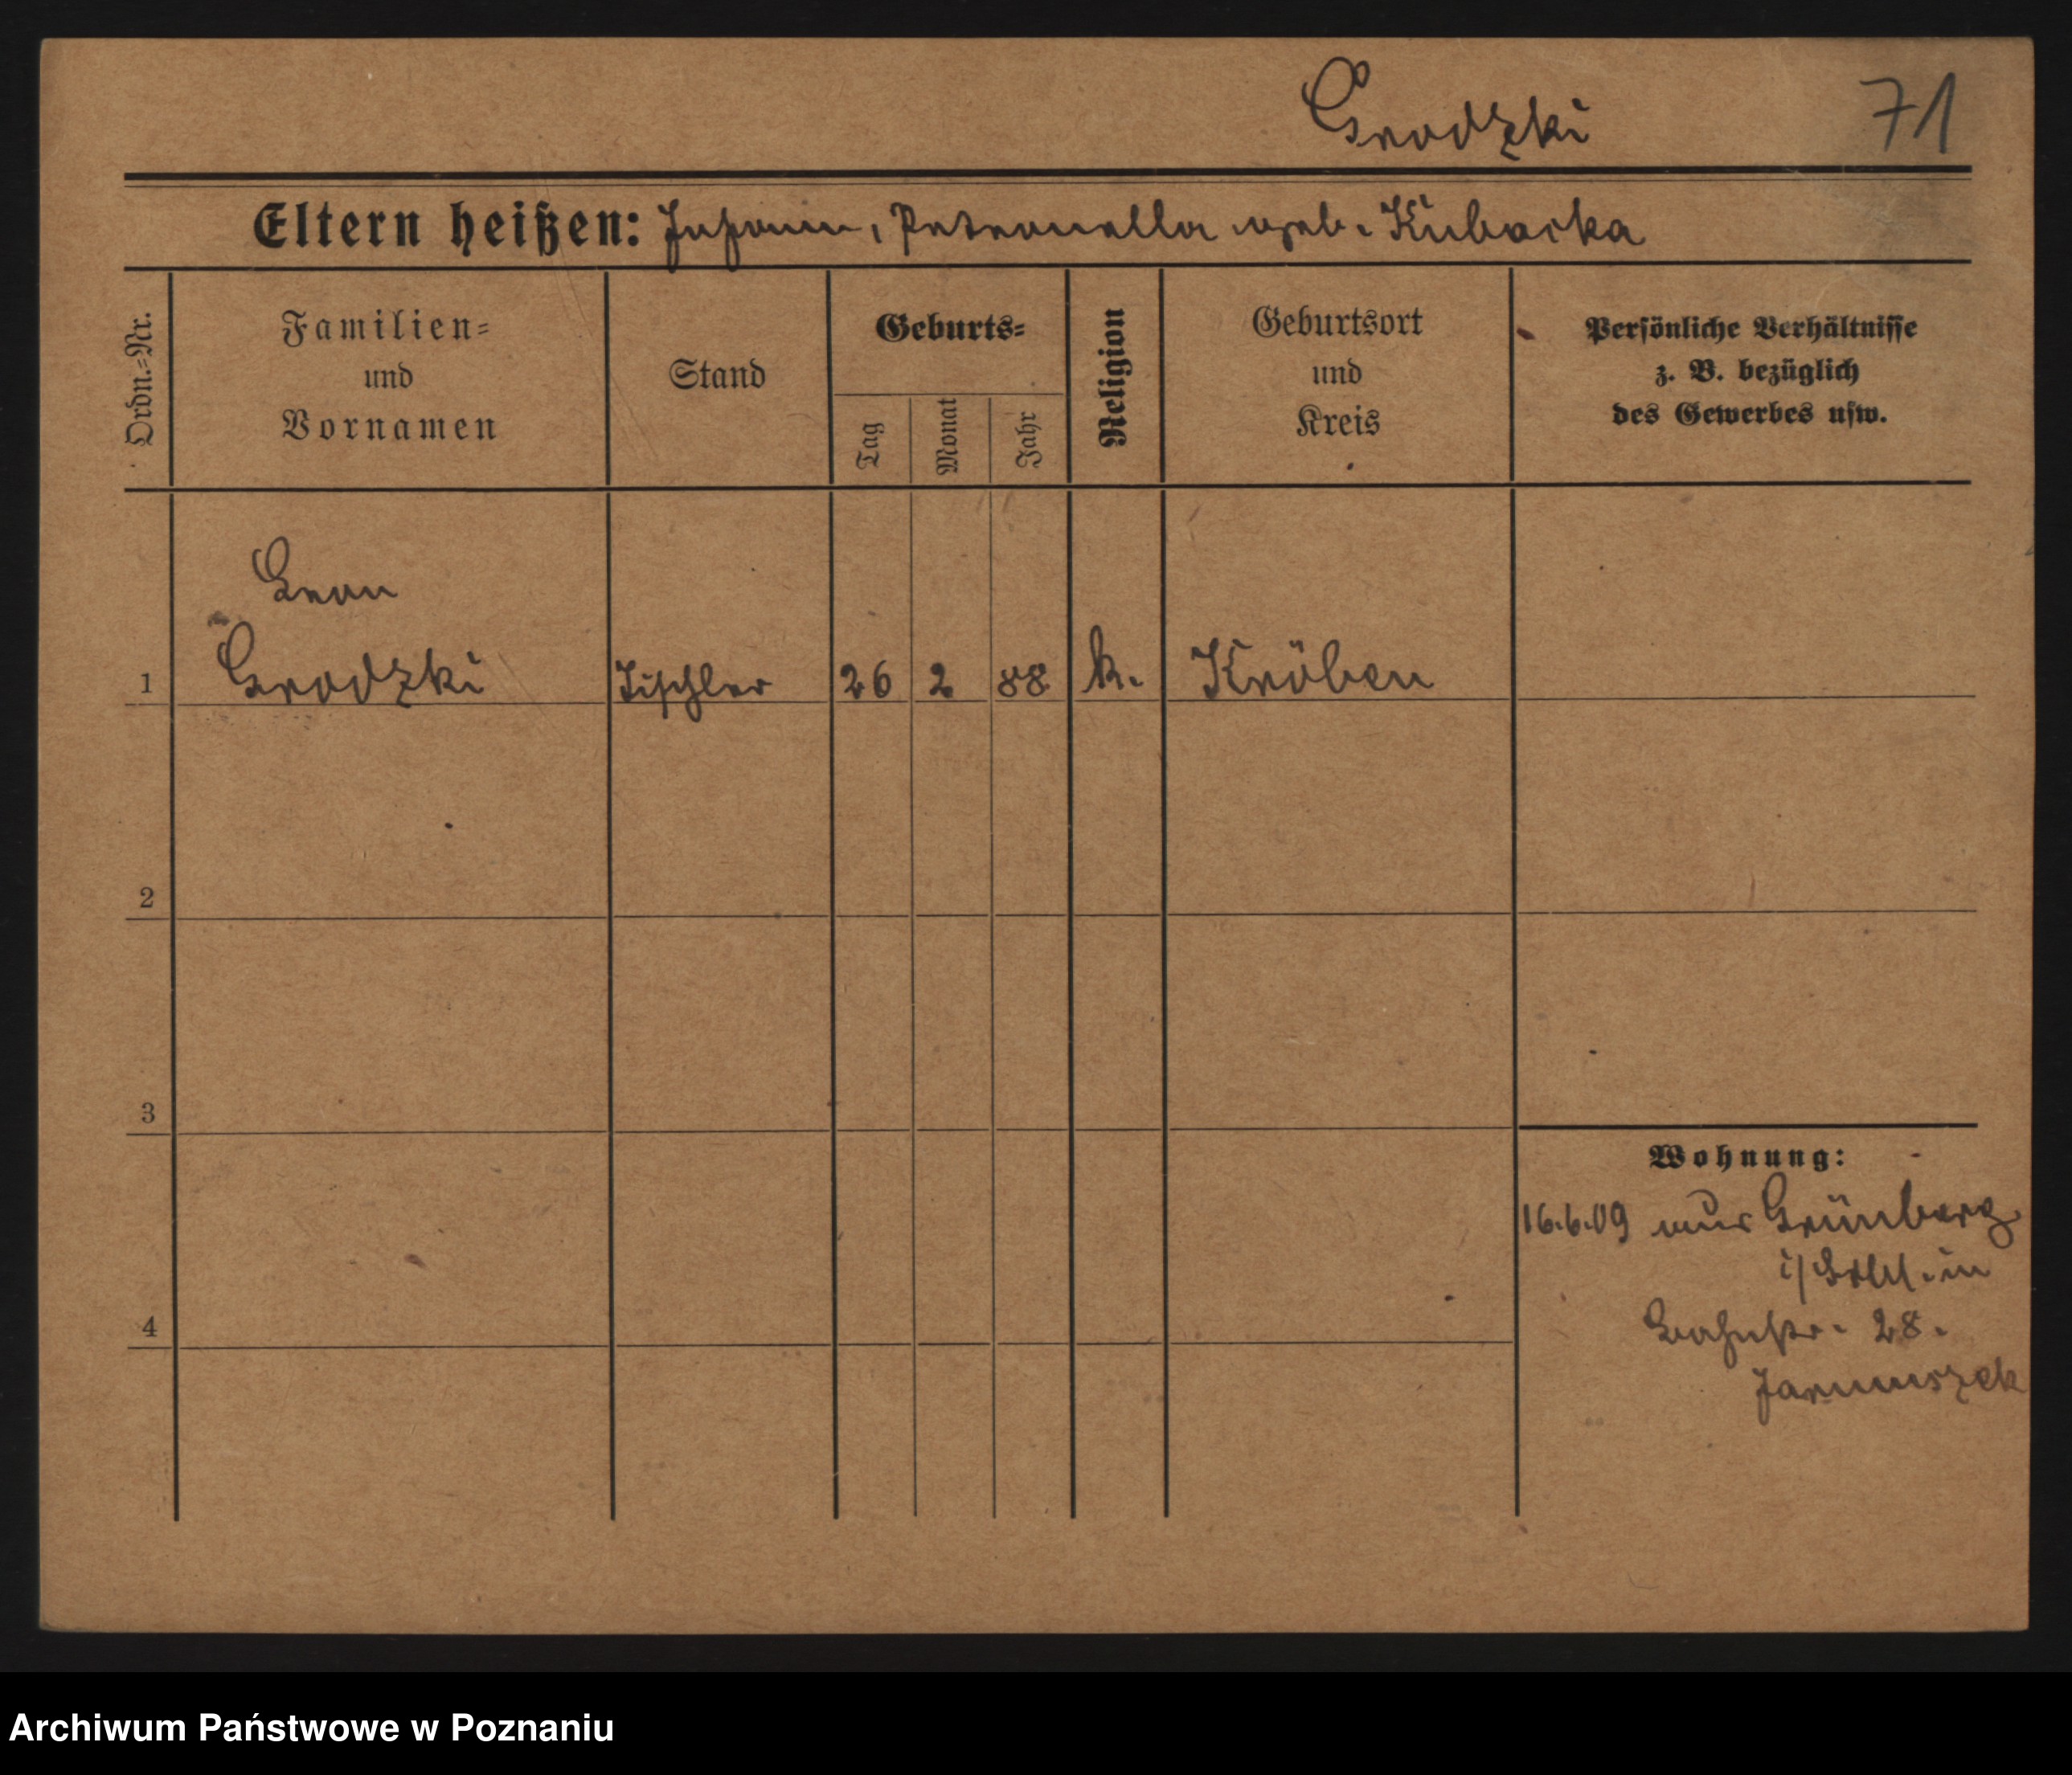 Grodzki 71
Eltern heißen: Johann, Petronella geb. Kubacka
Ordn.-Nr.
Familien-
und
Vornamen
Stand
Geburts-
Tag
Monat
Jahr
Religion
Geburtsort
und
Kreis
Persönliche Verhältnisse
z. B. bezüglich
des Gewerbes usw.
Leon
1 Grodzki Tischler 26 2 88 k. Kröben
2
3
Wohnung:
16.6.09 aus Grünberg
i/Schl. in
4
Bahnstr. 28.
Archiwum Państwowe w Poznaniu